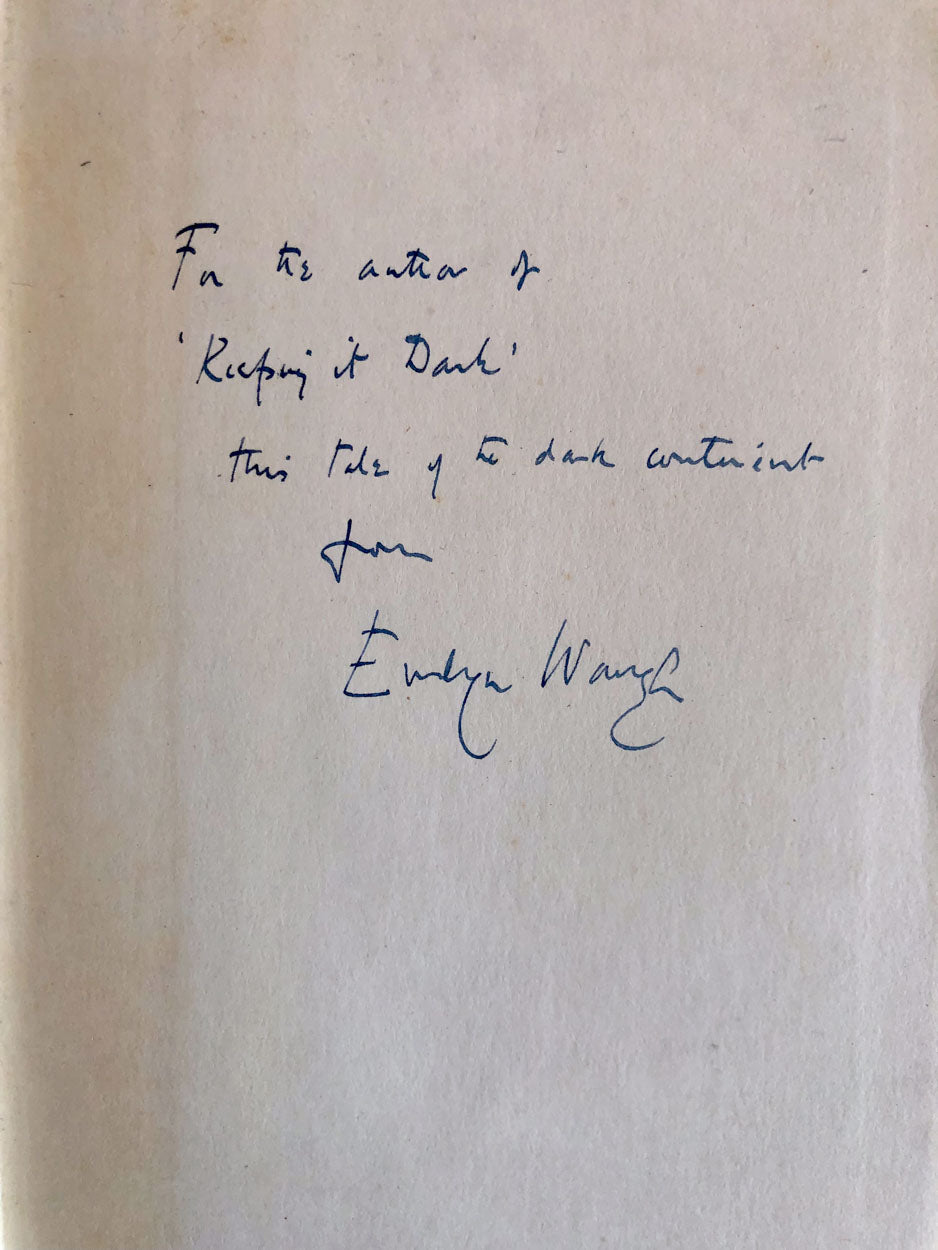 For the author of
'Keeping it Dark'
this tale of the dark continent
from
Evelyn Waugh